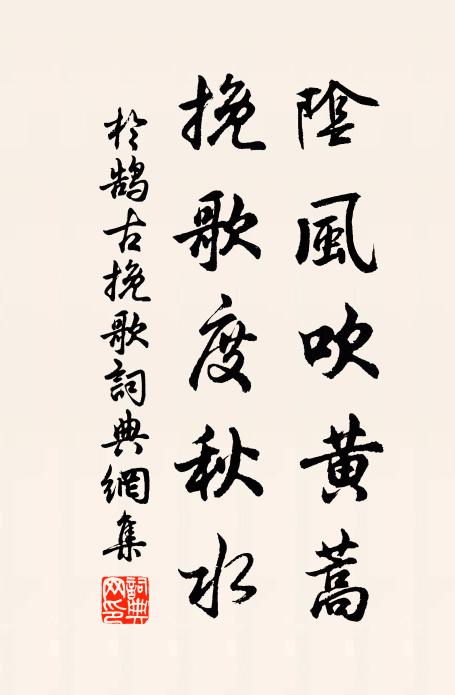 陰風吹黃蒿
挽歌度秋水
於鵠古挽歌詞典網集
詞典網印